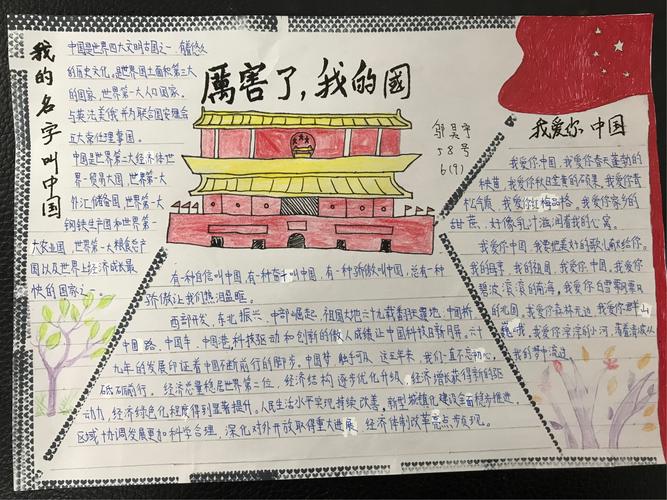 我的名字叫中国
中国是世界四大文明古国之一,有着悠久
的历史文化,是世界国土面积第三大
的国家,世界第一大人口国家,
与英法美俄并为联合国安理会
五大常任理事国。
中国是世界第二大经济体,世
界一贸易大国,世界第一大
外汇储备国,世界第一大
钢铁生产国和世界第一
大农业国,世界第一大粮食总产
国以及世界上经济成长最
快的国家之一。
厲害了,我的國
邹昊
58号
6(9)
有一种自信叫中国,有一种奋斗叫中国,有一种骄傲叫中国,总有一种
骄傲让我们热泪盈眶。
西部开发、东北振兴、中部崛起,祖国大地六十九载春秋露地,中国桥、
中国路、中国车、中国港,科技驱动和创新的傲人成绩让中国科技日新月异。六十
九年的发展印证着中国不断前行的脚步。中国梦,触手可及,这五年来,我们一直不忘初心,
砥砺前行。经济总量稳居世界第二位,经济结构逐步优化升级,经济增长获得新的驱
动力,经济绿色化程度得到显著提升,人民生活水平实现持续改善,新型城镇化建设全面稳步推进,
区域协调发展更加科学合理,深化对外开放取得重大进展,经济体制改革亮点步步现。
我爱你 中国
我爱你中国,我爱你春天蓬勃的
秧苗,我爱你秋日金黄的硕果,我爱你青
松气质,我爱你红梅品格,我爱你家乡的
甜蔗,好像乳汁滋润着我的心窝。
我爱你中国,我要把美好的歌儿献给你,
我的母亲,我的祖国,我爱你,中国,我爱你
碧波滚滚的南海,我爱你白雪飘飘
的北国,我爱你森林无边,我爱你群山
巍峨,我爱你淙淙的小河,荡着清波从
我的梦中流过。